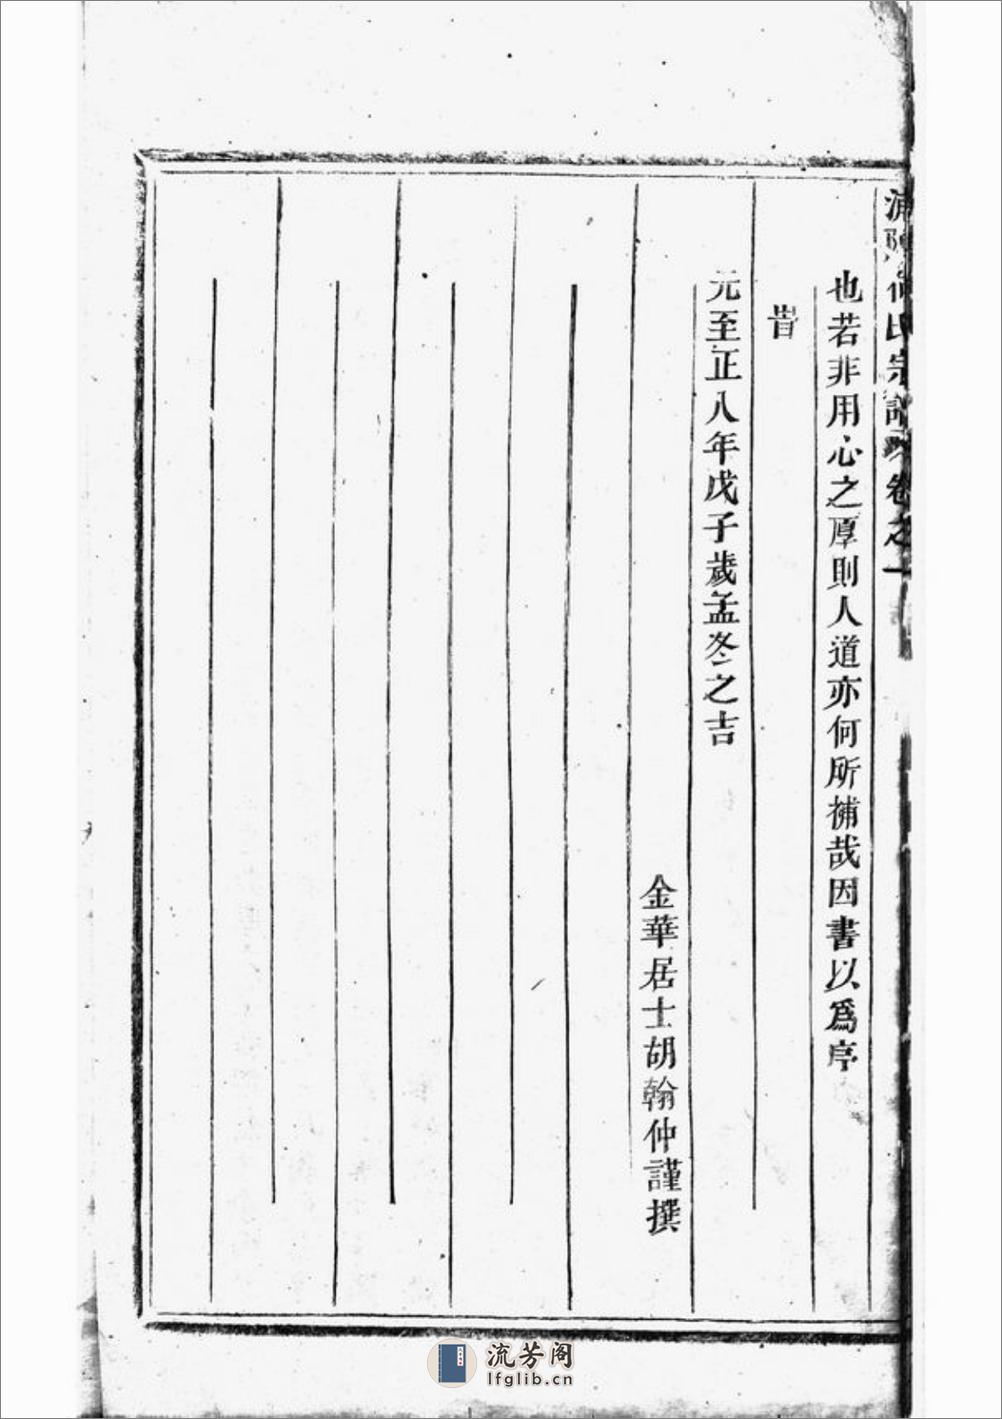 氏宗譜卷之一
也若非用心之厚則人道亦何所補哉因書以爲序
旹
元至正八年戊子歲孟冬之吉
金華居士胡翰仲謹撰
流芳阁
lfglib.cn